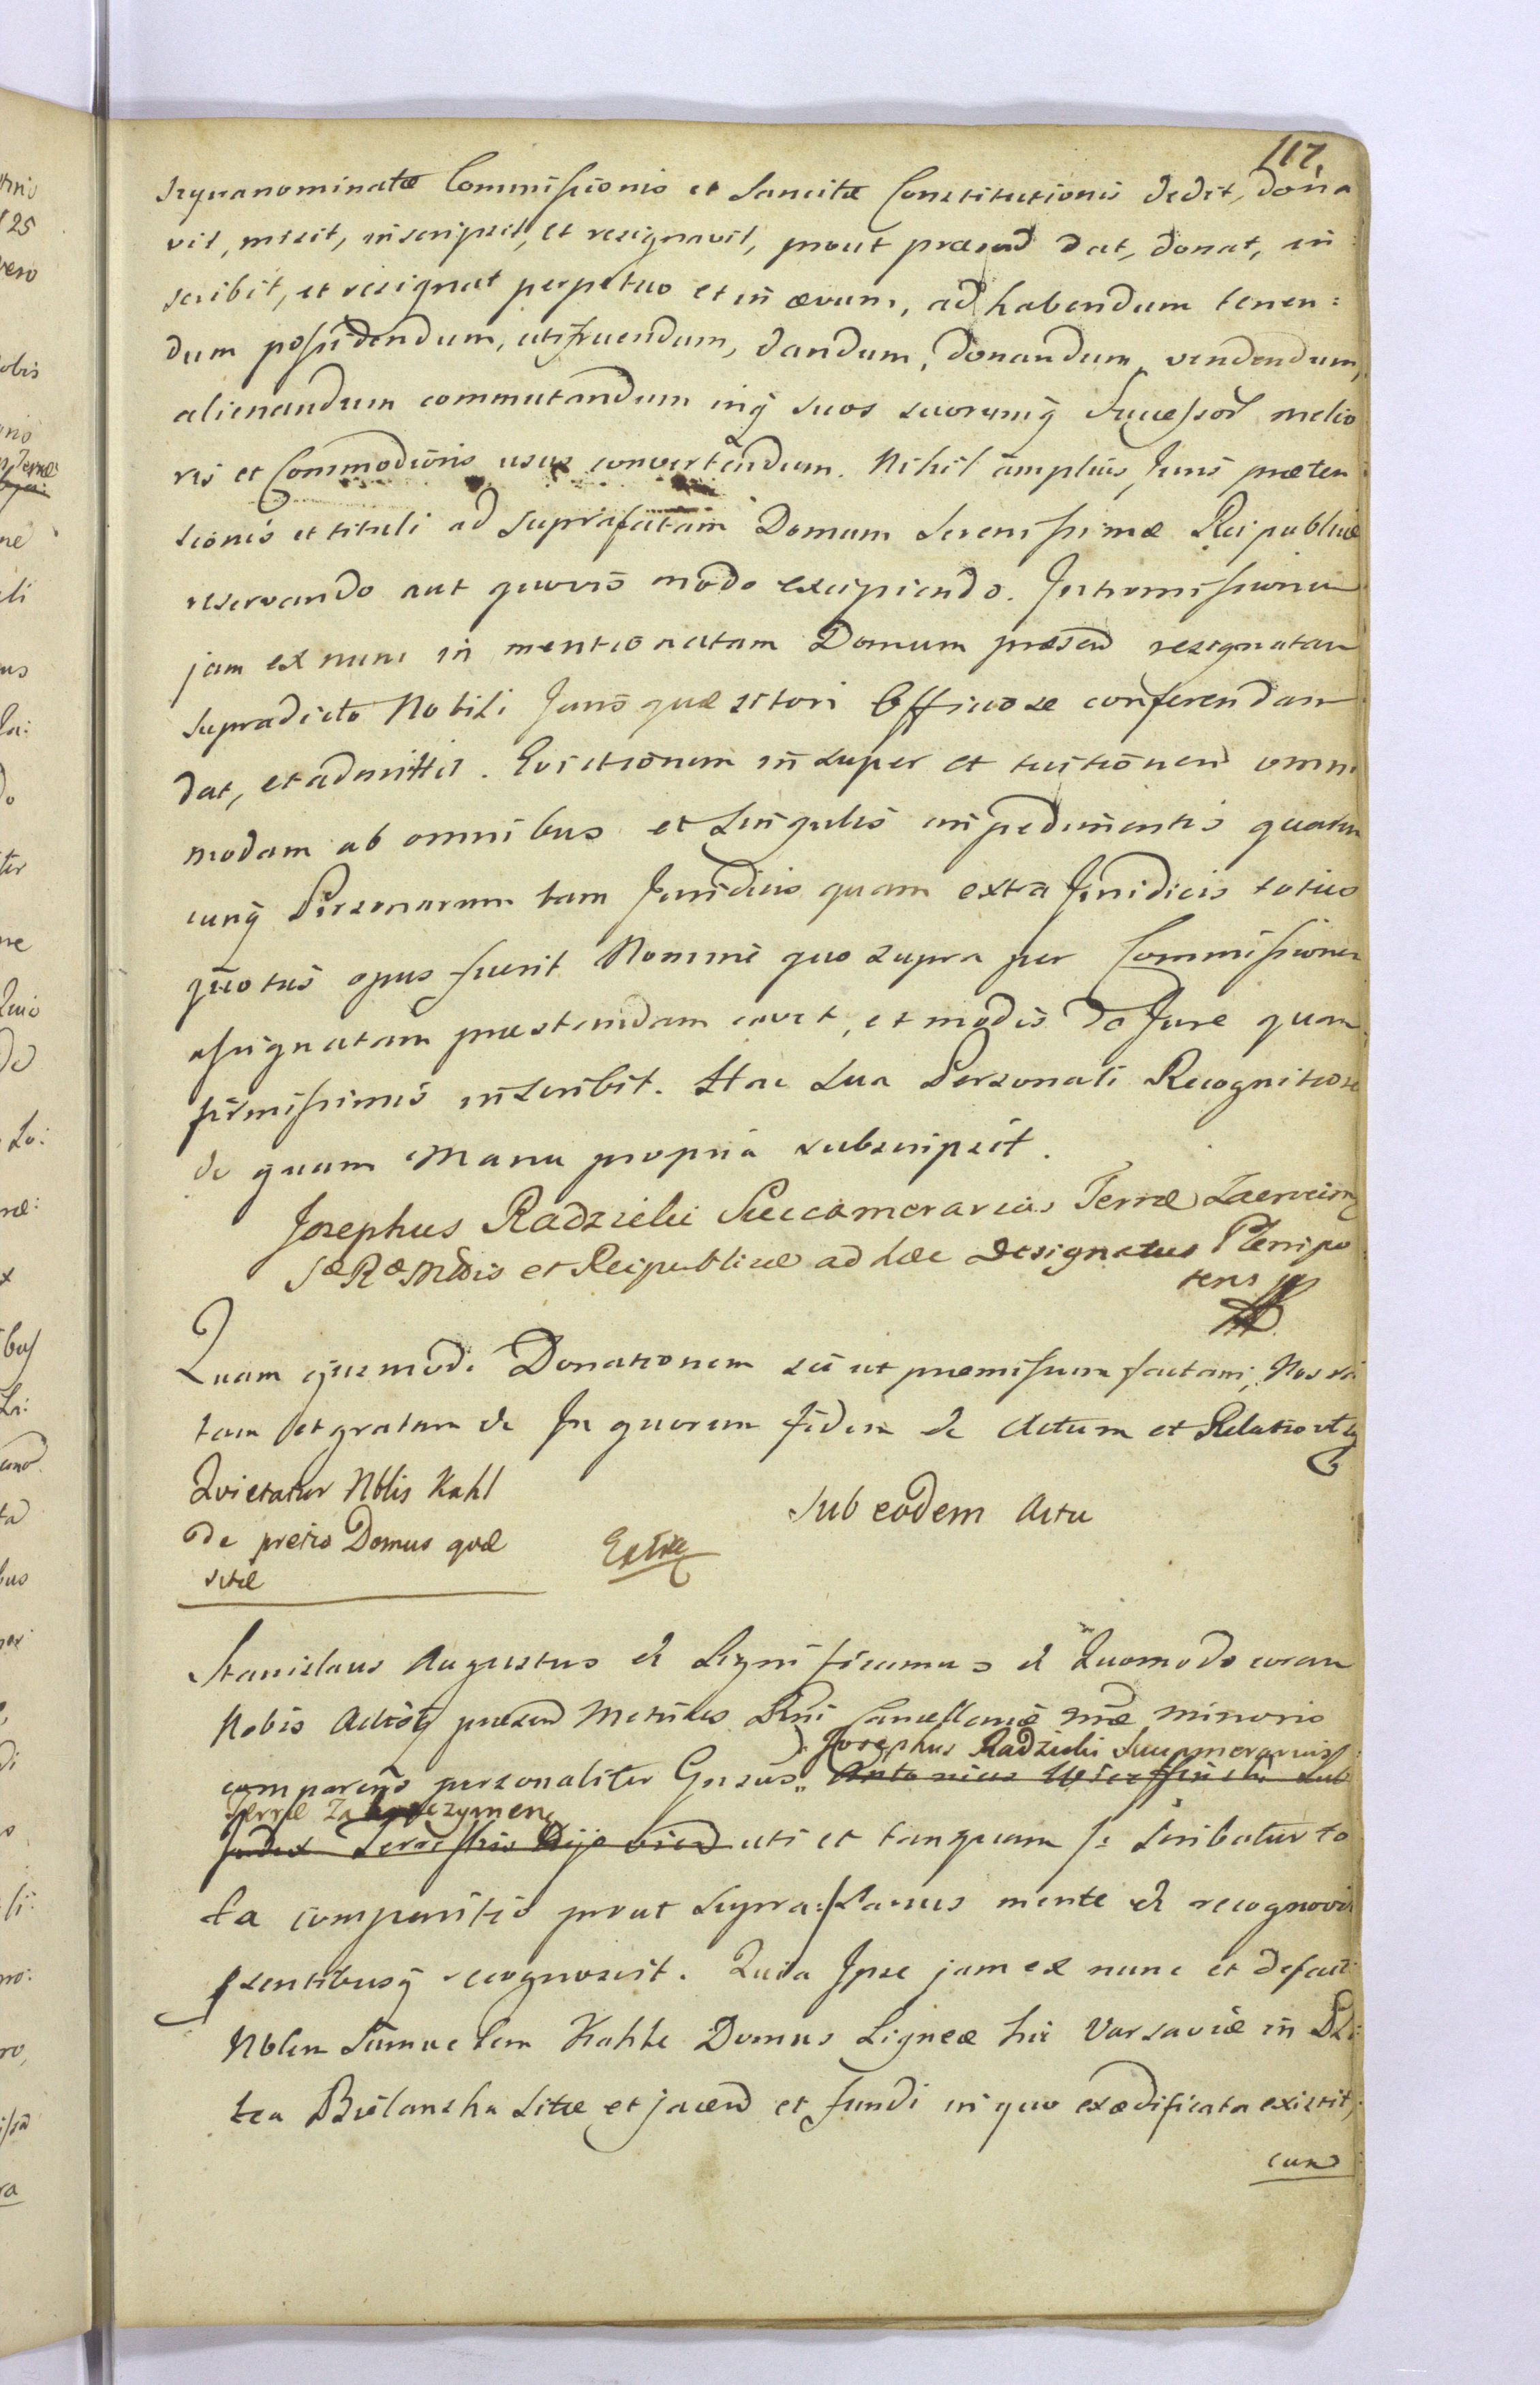 117.
supranominatæ Commissionis et Sancitæ Constitutionis dedit, dona
vit, misit, inscripsit, et resignavit, prout præsend dat, donat, in:
scribit, et resignat perpetuo et in ævum, ad habendum tenen:
dum possidendum, utifruendum, dandum, donandum, vendendum,
alienandum commutandum inq suos suorumq Successor melio
ris et Commodioris usus convertendum. Nihil amplius Juris præten
sionis et tituli ad suprafatam Domum Serenissimæ Reipublicæ
reservando aut quovis modo excipiendo. Intromissionem
jam ex nunc in mentionatam Domum præsend resignatam
supradicto Nobili Juris quæsitori Officiose conferendam
dat, et admittit. Evictionem insuper et tuitionem omni
modam ab omnibus et singulis impedimentis quarum
cunq Personarum tam Juridicis quam extra Juridicis toties
quoties opus fuerit Nomine quo supra per Commissionem
assignatam præstandam cavet, et modis de Jure quam
firmissimis inscribit. Hac sua Personali Recognitione
de quam Manu propria subscripsit.
Josephus Radzicki Succamerarius Terræ Zacrocim
SæRæMttis et Reipublicæ ad hæc designatus Plenipo
tens mp
Quam ejusmodi Donationem sic ut præmissum factam, Nos ra
tam et gratam &c In quorum fidem &c Actum et Relatio
Qvietatur Nblis Kahl
de pretio Domus quæ
sitæ
Extra
Sub eodem Actu
Stanislaus Augustus &c Significamus &c Quomodo coram
Nobis Actisq præsend Metrices Rni Cancellariæ Nræ Minoris
Josephus Radzicki Succamerarius
comparens personaliter Gnsus Antonius Sub
Terræ Zakroczymen
Judex Terrestris Kijovien uti et tanquam /: scribatur to
ta comparitio prout supra :/ Sanus mente &c recognovit
psentibusq recognoscit. Quia Ipse jam ex nunc et defacto
Nblem Samuelem Kahle Domus Ligneæ hic Varsaviæ in Pla
tea Bielanska sitæ et jacend et fundi in quo exædificata existit,
cum